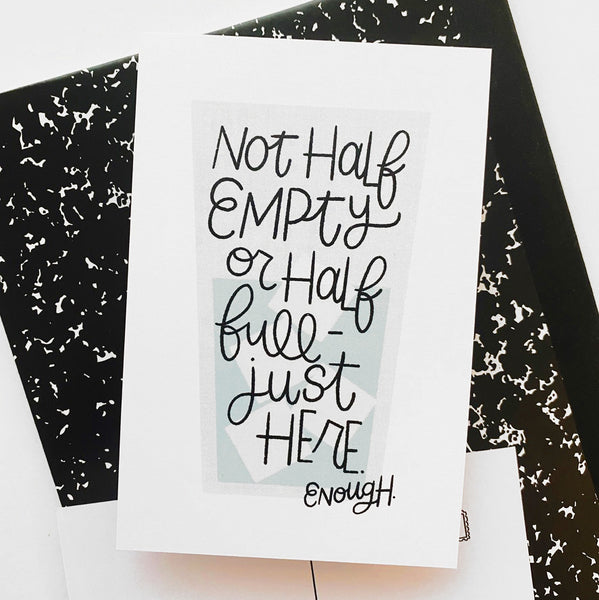 Not Half
EMPty
or Half
full-
just
HErE.
ENougH.